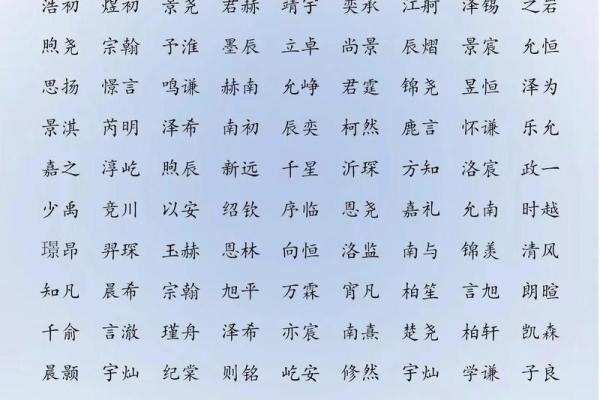 浩初 煜初 景尧 君赫 靖宇 奕承 江舸 泽锡 之岩
煦尧 宗翰 予淮 墨辰 立卓 尚景 辰熠 景宸 允恒
思扬 憬言 鸣谦 赫南 允峥 君霆 锦尧 昱恒 泽为
景淇 芮明 泽希 南初 辰奕 柯然 鹿言 怀谦 乐允
嘉之 淳屹 煦辰 新远 千星 沂琛 方知 洛宸 政一
少禹 竞川 以安 绍钦 序临 恩尧 嘉礼 允南 时越
璟昂 羿琛 玉赫 恩林 向恒 洛监 南与 锦羡 清风
知凡 晨希 宗翰 旭平 万霖 宵凡 柏笙 言旭 朗暄
千俞 言澈 瑾舟 泽希 亦宸 南熹 楚尧 柏轩 凯森
晨颢 宇灿 纪棠 则铭 屹安 修然 宇灿 学谦 子良